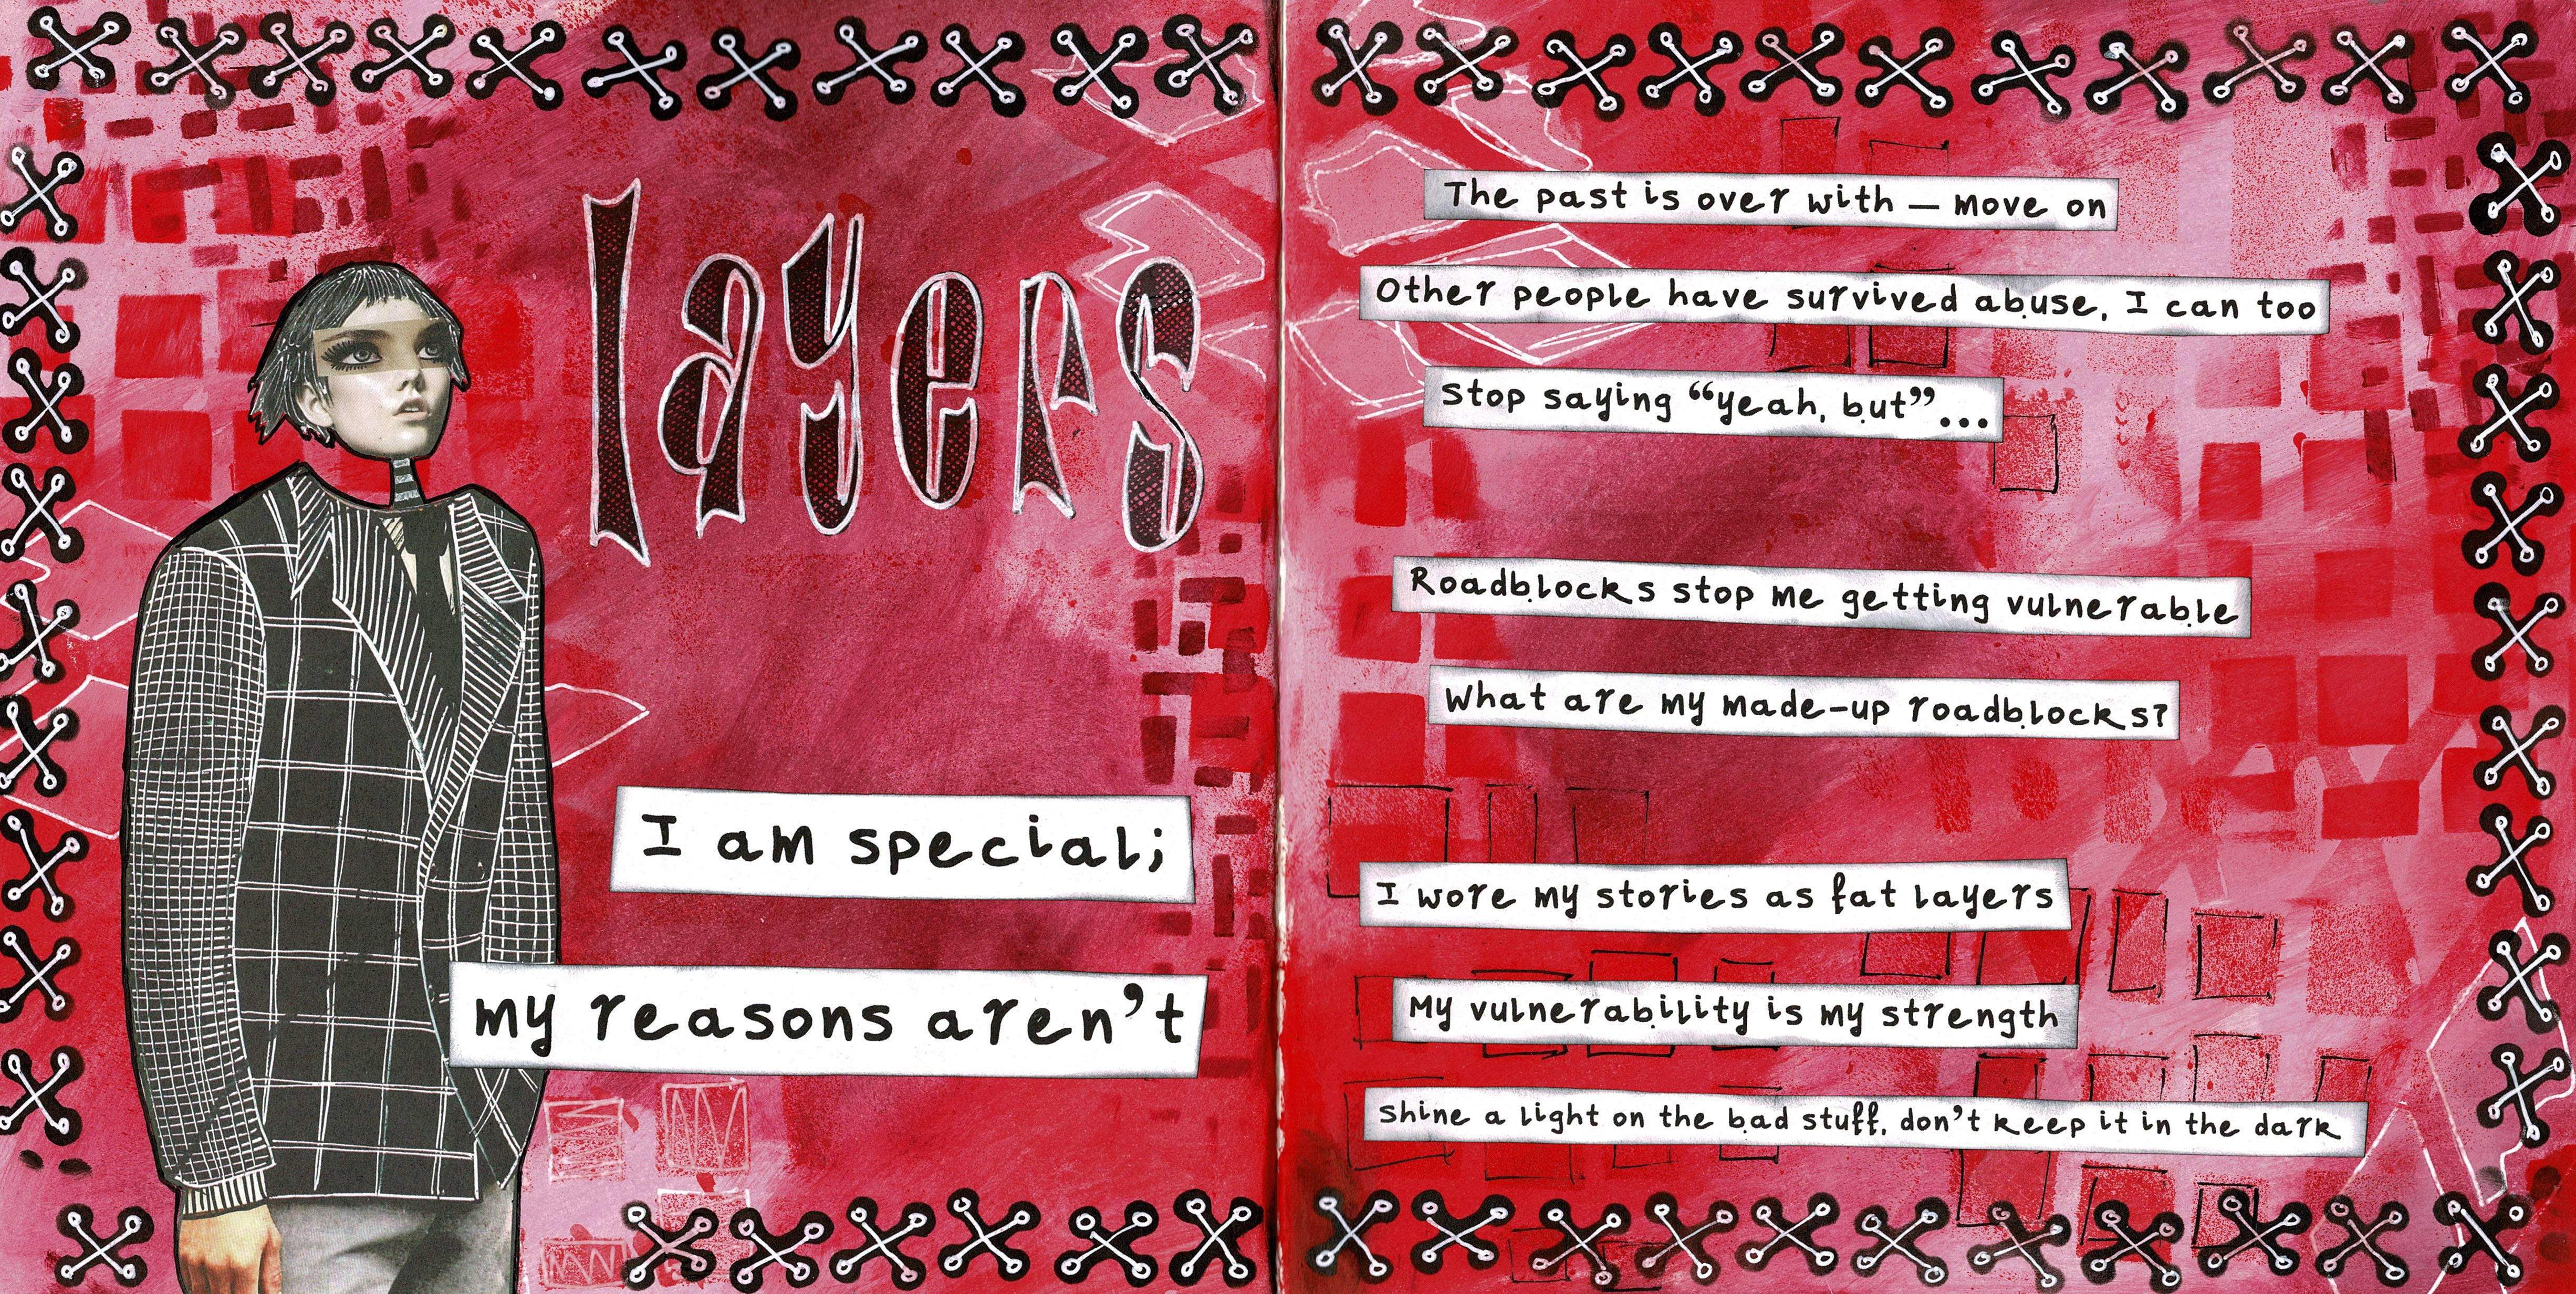 layers
I am special;
my reasons aren't
The past is over with – move on
Other people have survived abuse, I can too
Stop saying “yeah, but”...
Roadblocks stop me getting vulnerable
What are my made-up roadblocks?
I wore my stories as fat layers
My vulnerability is my strength
Shine a light on the bad stuff, don't keep it in the dark